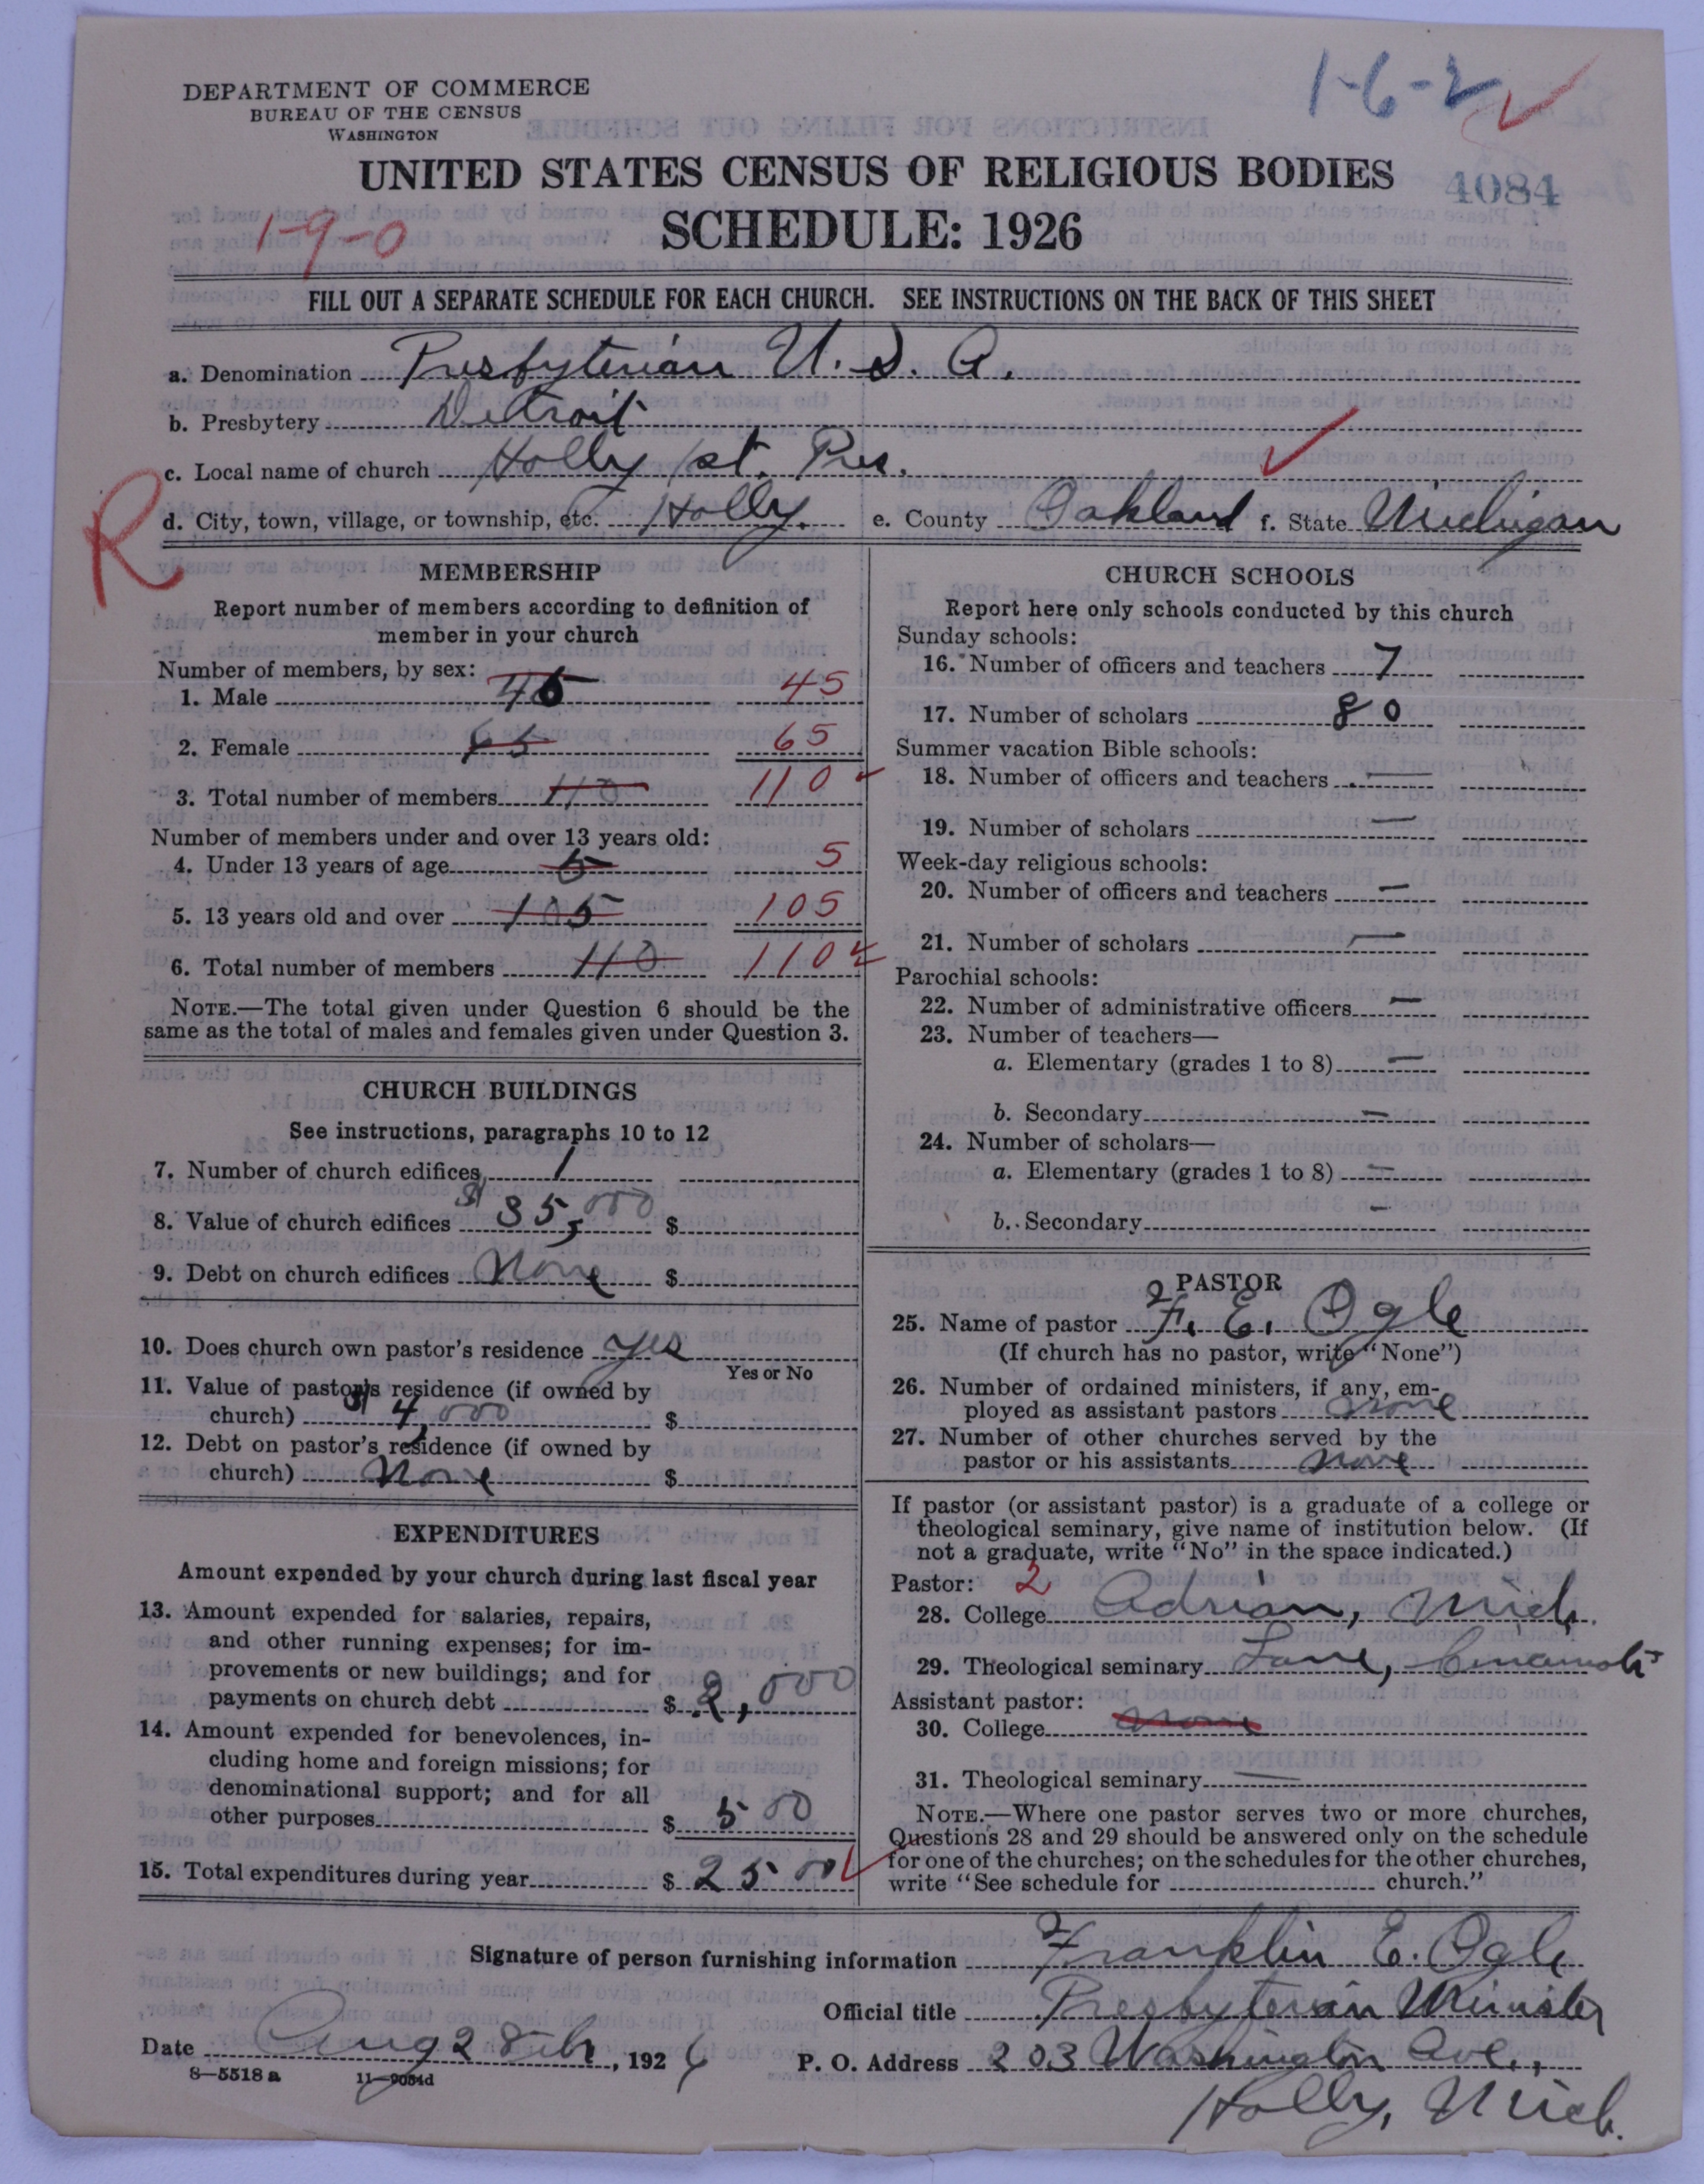 1-6-2
DEPARTMENT OF COMMERCE
BUREAU OF THE CENSUS
WASHINGTON
UNITED STATES CENSUS OF RELIGIOUS BODIES
4084
1-9-0
SCHEDULE: 1926
FILL OUT A SEPARATE SCHEDULE FOR EACH CHURCH. SEE INSTRUCTIONS ON THE BACK OF THIS SHEET
a. Denomination Presbyterian U.S.A.
b. Presbytery Detroit
c. Local name of church Holly 1st. Pres.
R
d. City, town, village, or township, etc. Holly. e. County Oakland f. State Michigan
MEMBERSHIP
Report number of members according to definition of
member in your church
Number of members, by sex:
1. Male 45 45
2. Female 65 65
3. Total number of members 110 110
Number of members under and over 13 years old:
4. Under 13 years of age 5 5
5. 13 years old and over 105 105
6. Total number of members 110 110
NOTE.—The total given under Question 6 should be the
same as the total of males and females given under Question 3.
CHURCH BUILDINGS
See instructions, paragraphs 10 to 12
7. Number of church edifices 1
8. Value of church edifices $35,000 $
9. Debt on church edifices None $
10. Does church own pastor's residence yes
Yes or No
11. Value of pastor's residence (if owned by
church) $4,000 $
12. Debt on pastor's residence (if owned by
church) None $
EXPENDITURES
Amount expended by your church during last fiscal year
13. Amount expended for salaries, repairs,
and other running expenses; for im-
provements or new buildings; and for
payments on church debt $ 2,000
14. Amount expended for benevolences, in-
cluding home and foreign missions; for
denominational support; and for all
other purposes $ 500
15. Total expenditures during year $ 2500
CHURCH SCHOOLS
Report here only schools conducted by this church
Sunday schools:
16. Number of officers and teachers 7
17. Number of scholars 80
Summer vacation Bible schools:
18. Number of officers and teachers —
19. Number of scholars —
Week-day religious schools:
20. Number of officers and teachers —
21. Number of scholars —
Parochial schools:
22. Number of administrative officers —
23. Number of teachers—
a. Elementary (grades 1 to 8) —
b. Secondary —
24. Number of scholars—
a. Elementary (grades 1 to 8) —
b. Secondary -
PASTOR
2
25. Name of pastor F. E. Ogle
(If church has no pastor, write "None")
26. Number of ordained ministers, if any, em-
ployed as assistant pastors None
27. Number of other churches served by the
pastor or his assistants None
If pastor (or assistant pastor) is a graduate of a college or
theological seminary, give name of institution below. (If
not a graduate, write "No" in the space indicated.)
Pastor: 2
28. College Adrian, Mich.
29. Theological seminary Lane, Cincinnati
Assistant pastor:
30. College None
31. Theological seminary —
NOTE.—Where one pastor serves two or more churches,
Questions 28 and 29 should be answered only on the schedule
for one of the churches; on the schedules for the other churches,
write "See schedule for church."
Signature of person furnishing information Franklin E. Ogle
Official title Presbyterian Minister
Date Aug 28th, 1926 P. O. Address 203 Washington Ave.,
8—5518 a 11—9054d
Holly, Mich.